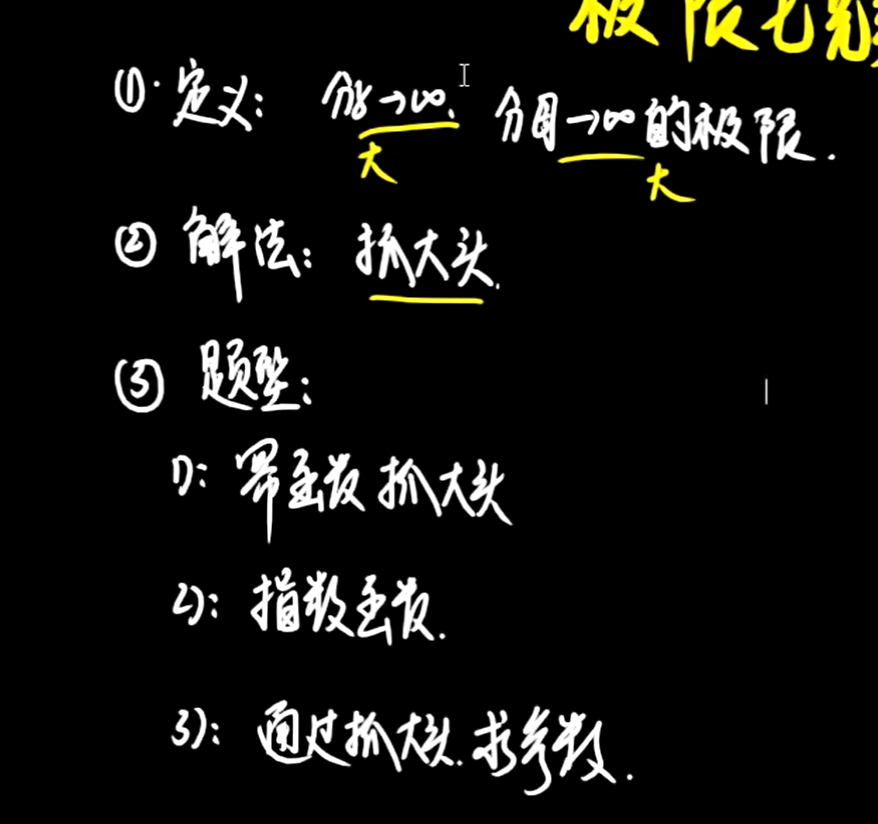 极限七
① 定义: 分子→∞. 分母→∞的极限.
大 大
② 解法: 抓大头.
③ 题型:
1): 幂函数抓大头
2): 指数函数.
3): 通过抓大头.求参数.